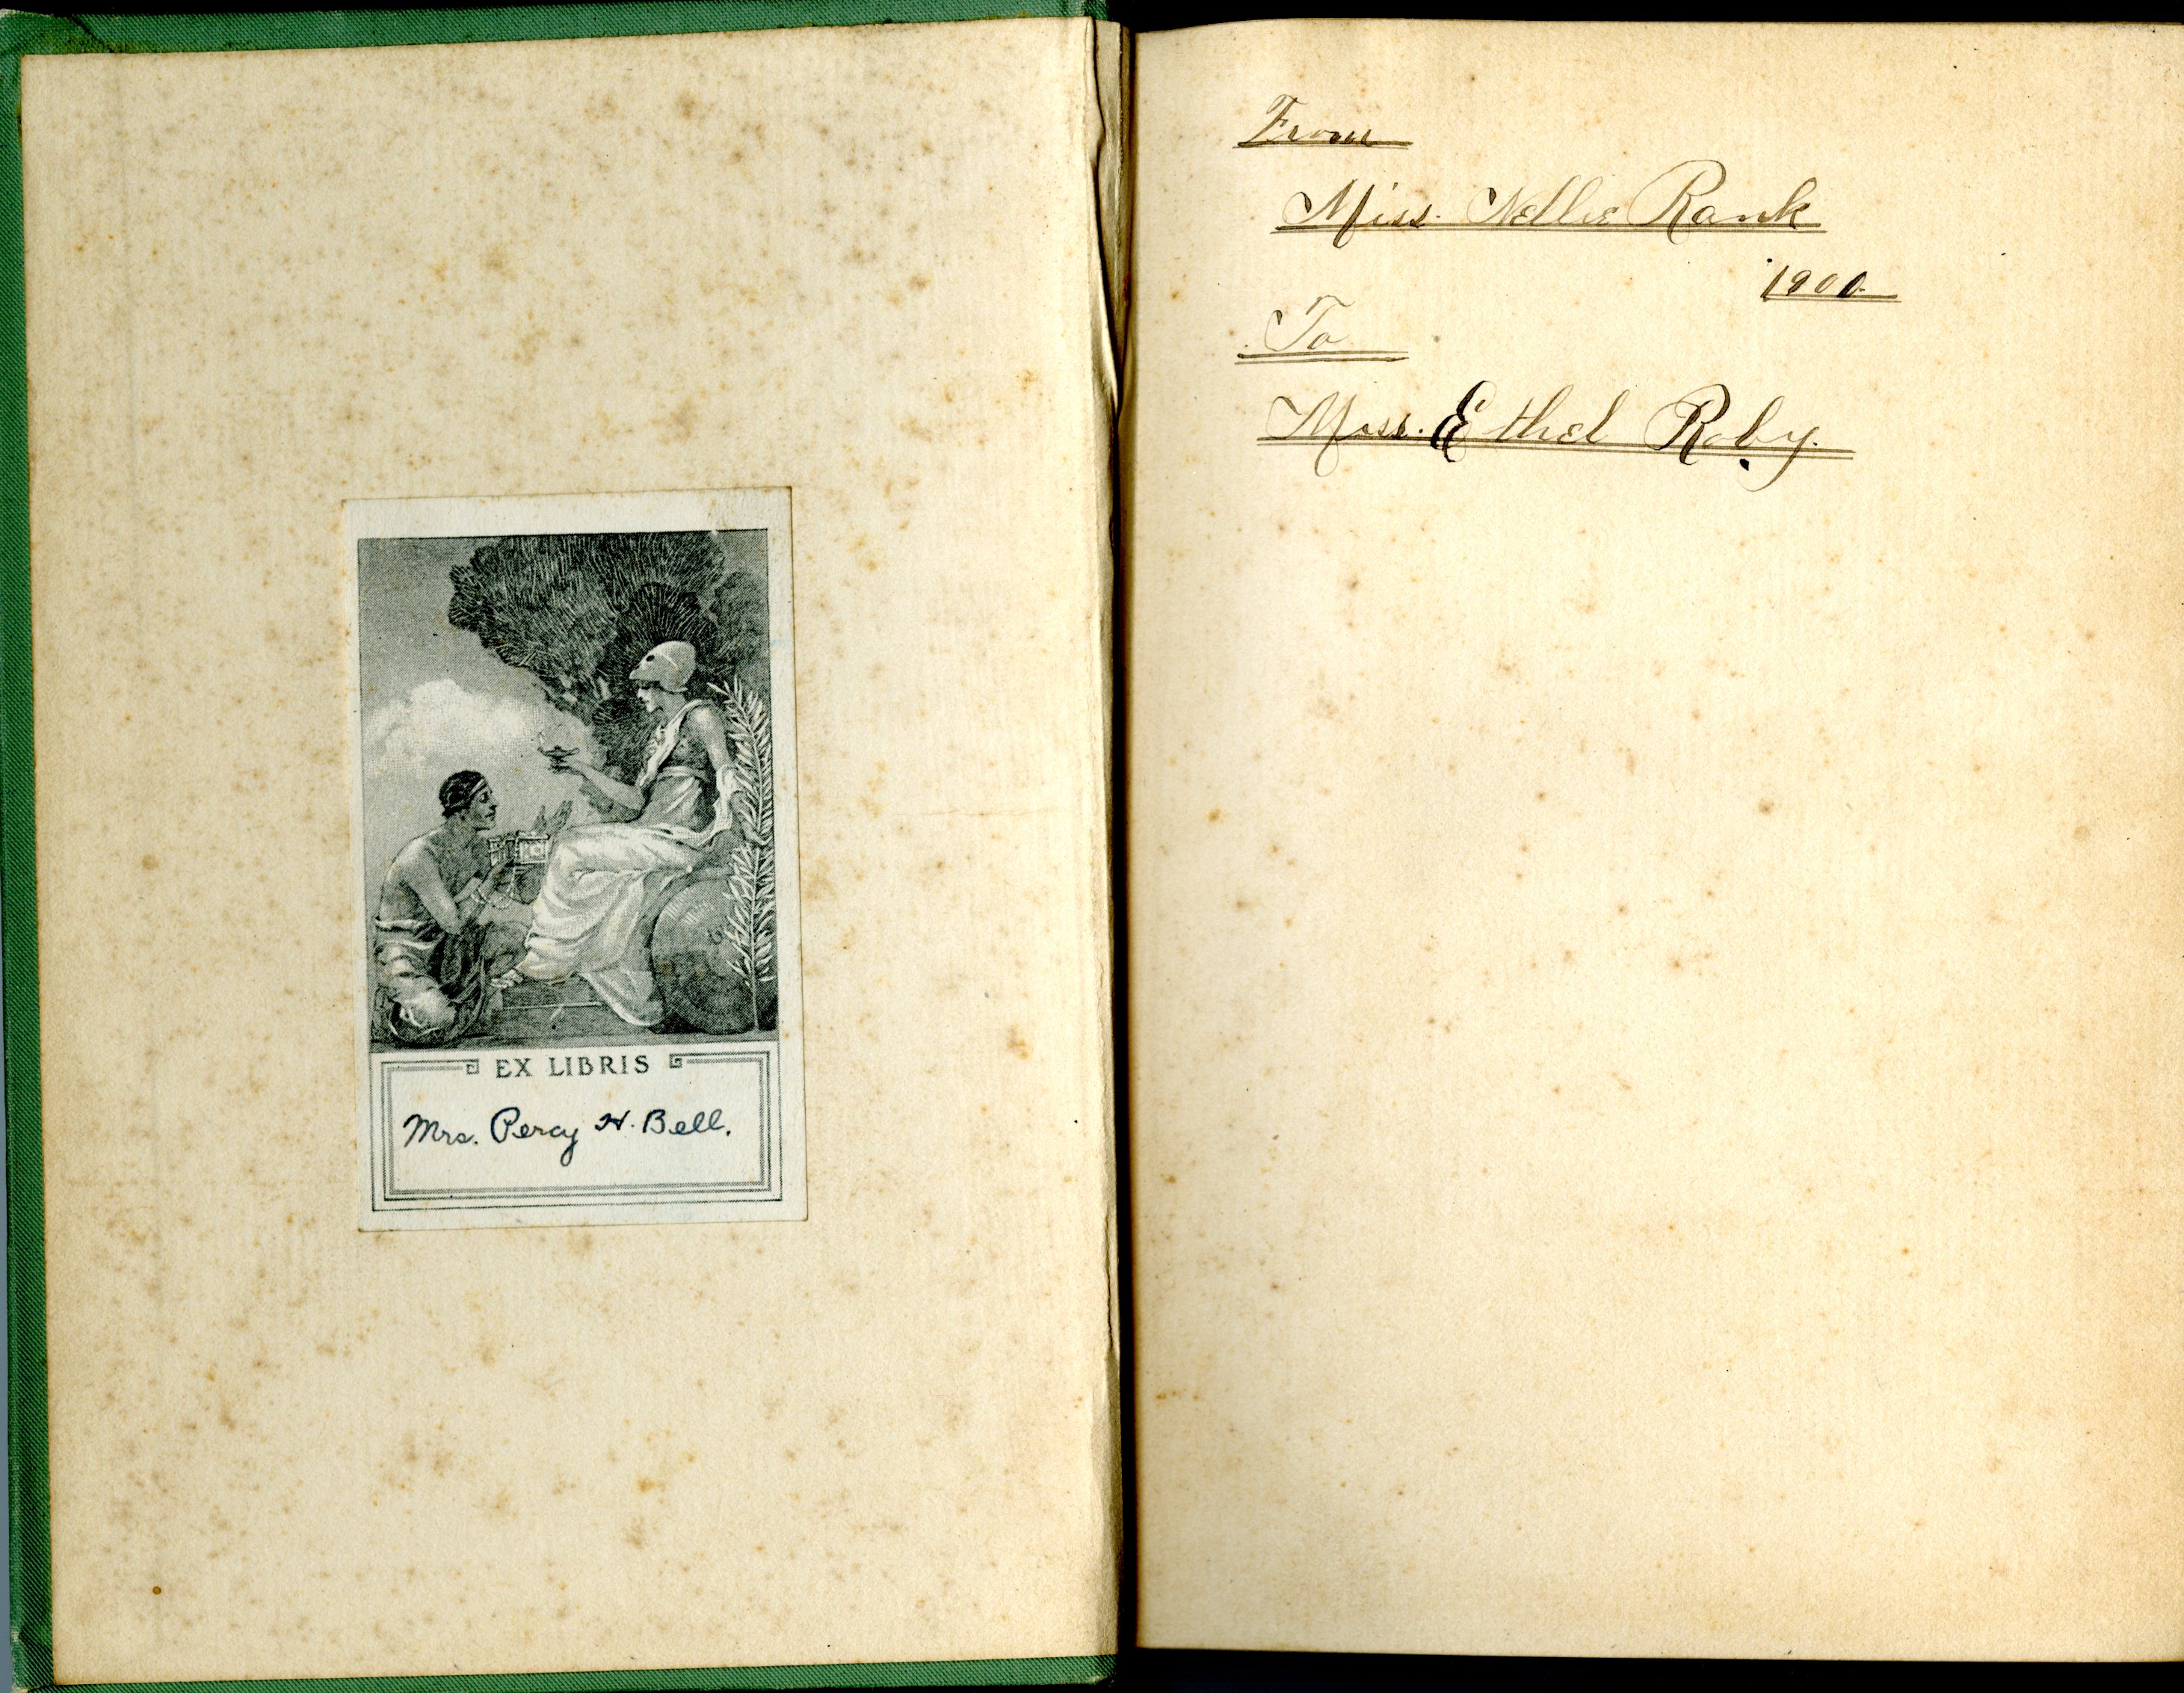 EX LIBRIS
Mrs. Percy H. Bell.
From
Miss. Nellie Rank
1900
To
Miss. Ethel Roby.